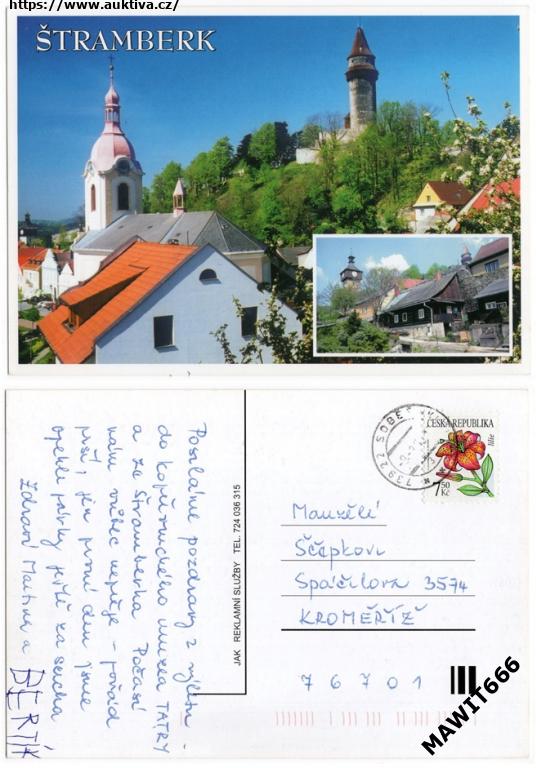 https://www.auktiva.cz/
ŠTRAMBERK
Posíláme pozdravy z výletu
do kopřivnického muzea TATRY
a ze Štramberka. Počasí
nám vůbec nepřeje - pořád
prší, jen první den jsme
opekli párky ještě za sucha
Zdraví Martina a
BERTÍK
JAK REKLAMNÍ SLUŽBY TEL. 724 036 315
73922
ČESKÁ REPUBLIKA
lilie
7 50
Kč
Manželé
Ščépkovi
Spáčilova 3574
KROMĚŘÍŽ
76701
MAWIT666